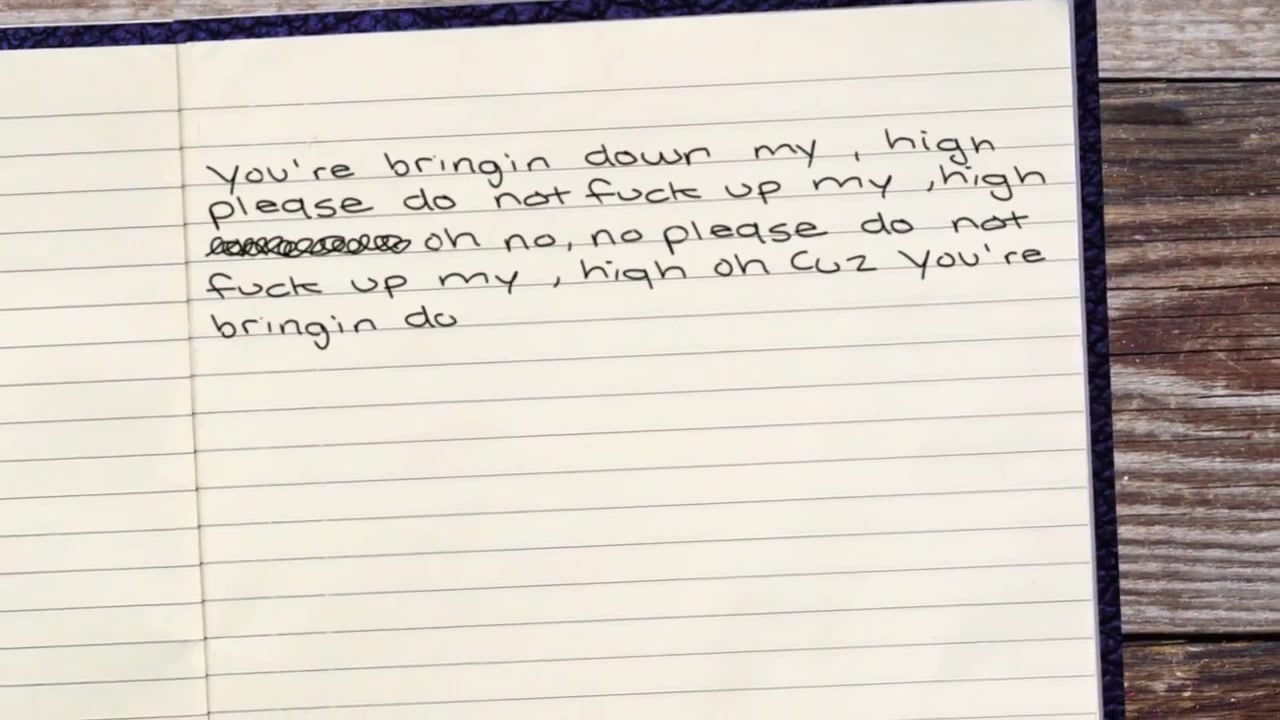 You're bringin down my , high
please do not fuck up my , high
oh no, no please do not
fuck up my , high oh cuz you're
bringin do